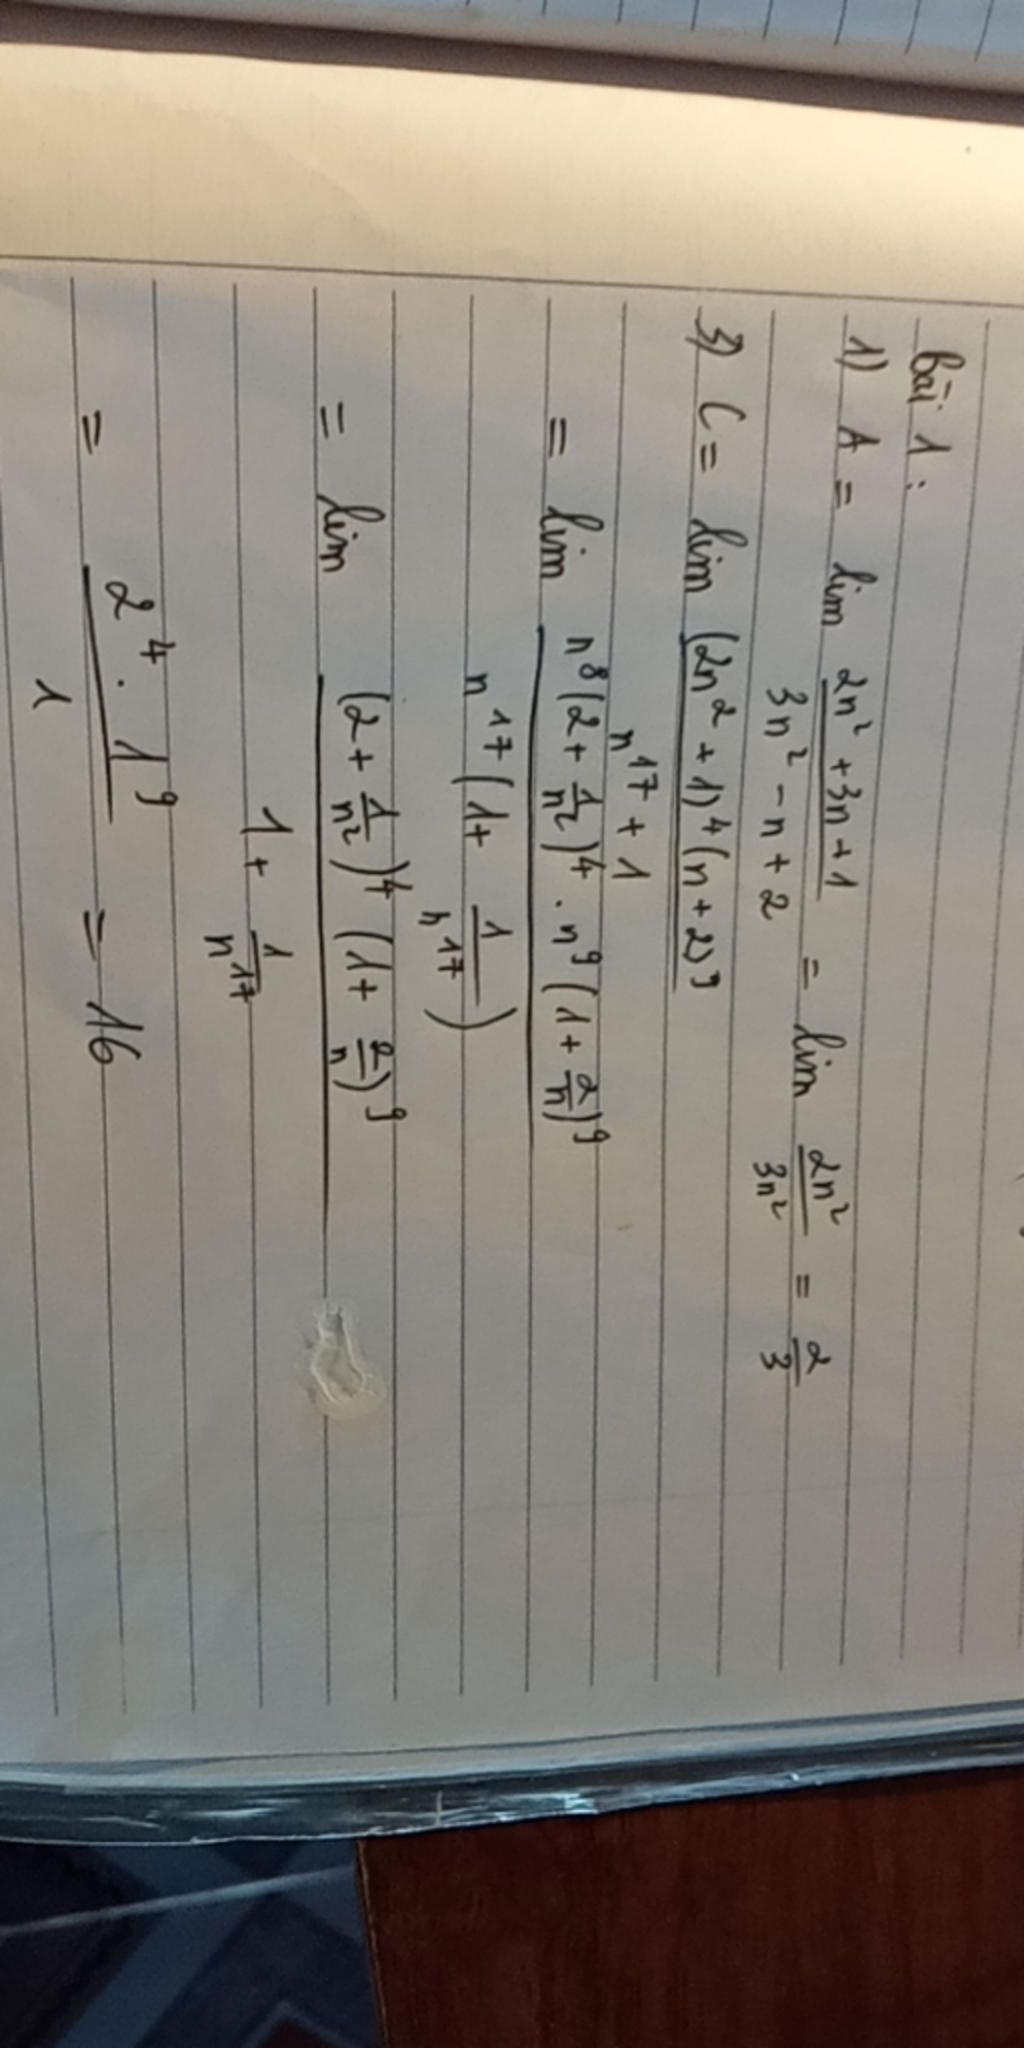 Bài 1:
1) A = lim (2n² + 3n + 1)/(3n² - n + 2) = lim 2n²/3n² = 2/3
3) C = lim (2n² + 1)⁴(n + 2)⁹/(n¹⁷ + 1)
= lim n⁸(2 + 1/n²)⁴ . n⁹(1 + 2/n)⁹/(n¹⁷(1 + 1/n¹⁷))
= lim (2 + 1/n²)⁴ (1 + 2/n)⁹/(1 + 1/n¹⁷)
= 2⁴ . 1⁹/1 = 16